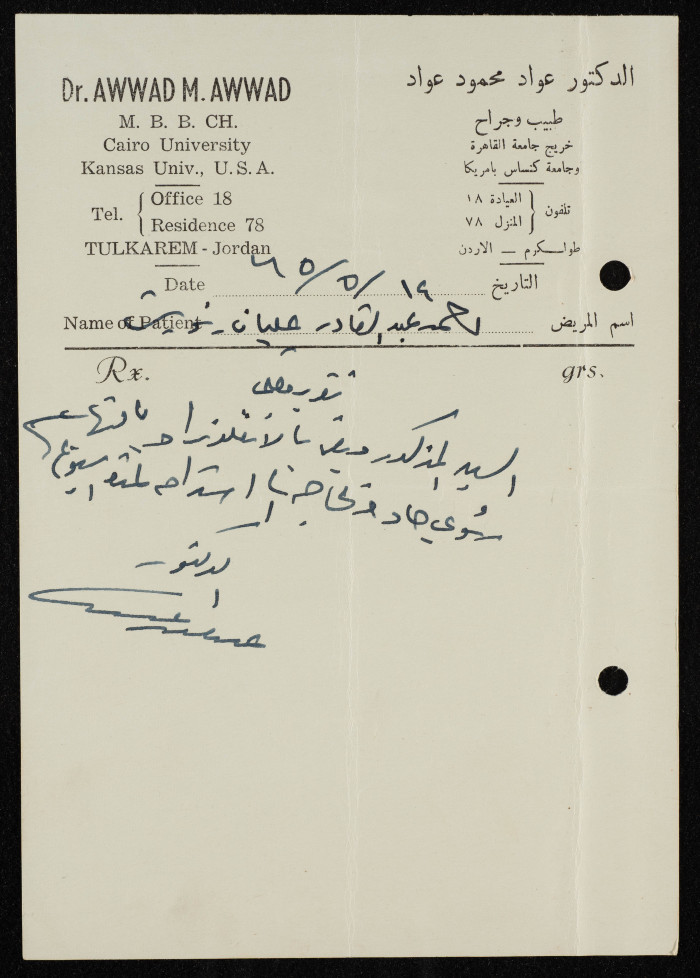 Dr. AWWAD M. AWWAD
M. B. B. CH.
Cairo University
Kansas Univ., U. S. A.
Tel. { Office 18
Residence 78
TULKAREM - Jordan
الدكتور عواد محمود عواد
طبيب وجراح
خريج جامعة القاهرة
وجامعة كنساس بامريكا
تلفون { العيادة ١٨
المنزل ٧٨
طولكرم — الاردن
Date ١٤ / ٥ / ٦٥ التاريخ
Name of Patient احمد عبد القادر عليان اسم المريض
Rx. grs.
تقرير طبي
السيد المذكور مريض بالانفلونزا و التهاب
رئوي حاد و بحاجة الى استراحة لمدة اسبوع
الدكتور